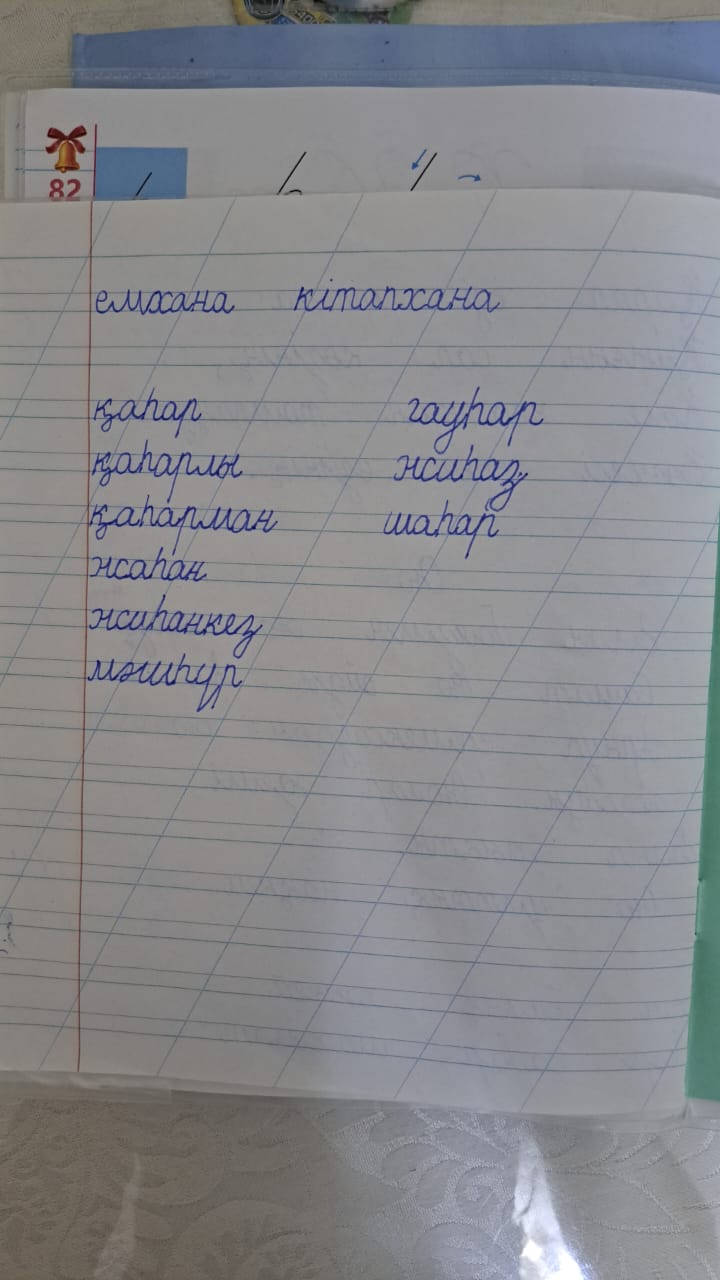 82
емхана кітапхана
қаһар гауһар
қаһарлы жиһаз
қаһарман шаһар
жаһан
жиһанкез
мәшһүр